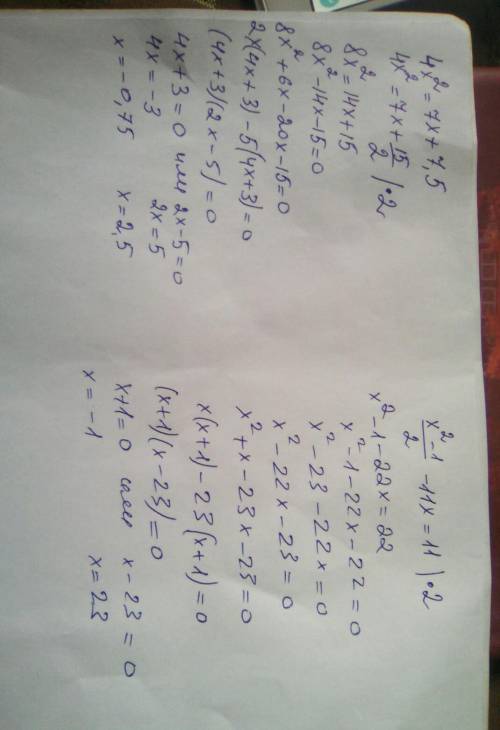 4x² = 7x + 7,5
4x² = 7x + 15/2 | · 2
8x² = 14x + 15
8x² - 14x - 15 = 0
8x² + 6x - 20x - 15 = 0
2x(4x + 3) - 5(4x + 3) = 0
(4x + 3)(2x - 5) = 0
4x + 3 = 0 или 2x - 5 = 0
4x = -3 2x = 5
x = -0,75 x = 2,5
x² - 1 / 2 - 11x = 11 | · 2
x² - 1 - 22x = 22
x² - 1 - 22x - 22 = 0
x² - 23 - 22x = 0
x² - 22x - 23 = 0
x² + x - 23x - 23 = 0
x(x + 1) - 23(x + 1) = 0
(x + 1)(x - 23) = 0
x + 1 = 0 или x - 23 = 0
x = -1 x = 23